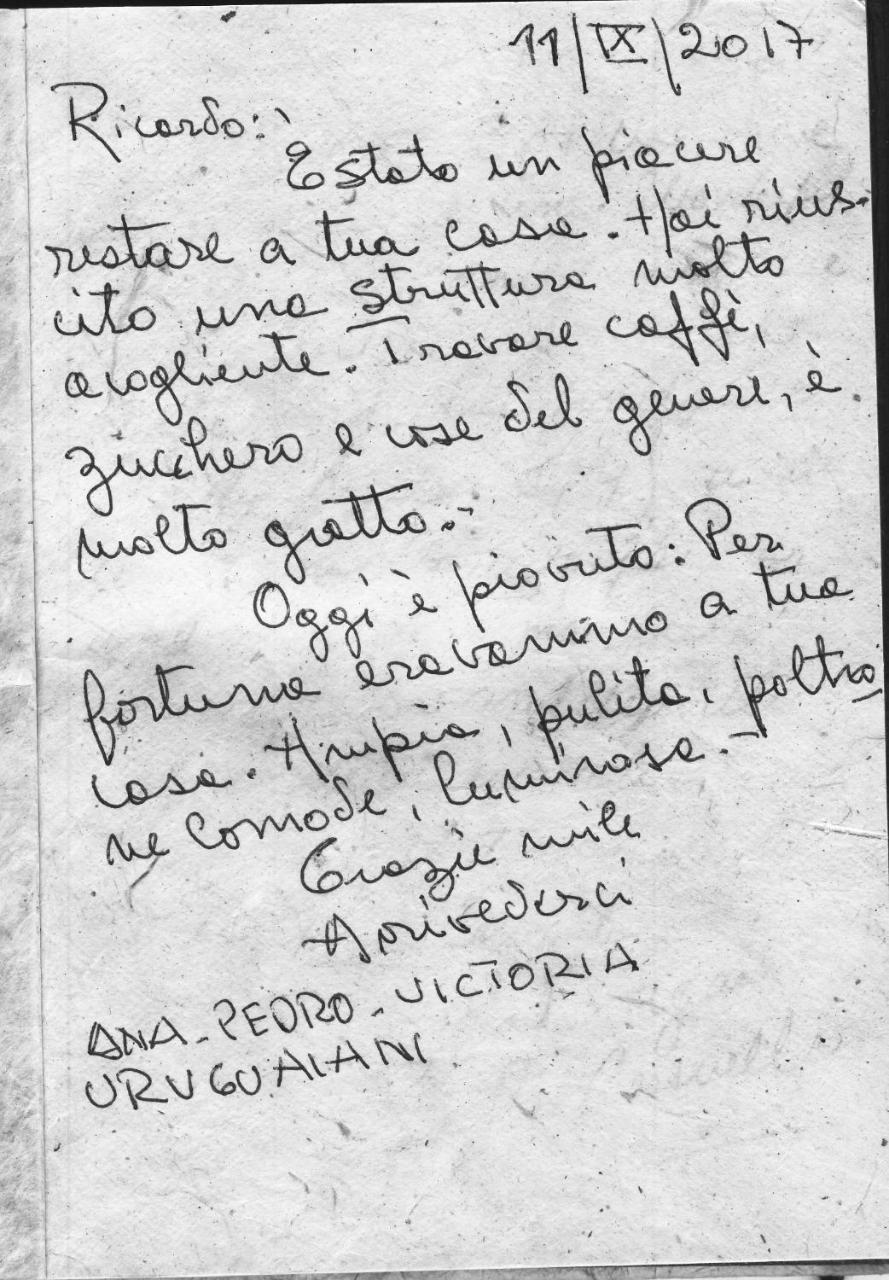 11/IX/2017
Ricardo:
È stato un piacere
restare a tua casa. Hai rius-
cito una struttura molto
acogliente. Trovare caffè,
zucchero e cose del genere, è
molto gratto.-
Oggi è piovuto: Per
fortuna eravammo a tua
casa. Ampia, pulita, poltro
ne comode, luminosa.-
Grazie mille
Arrivederci
ANA - PEDRO - VICTORIA
URUGUAIANI